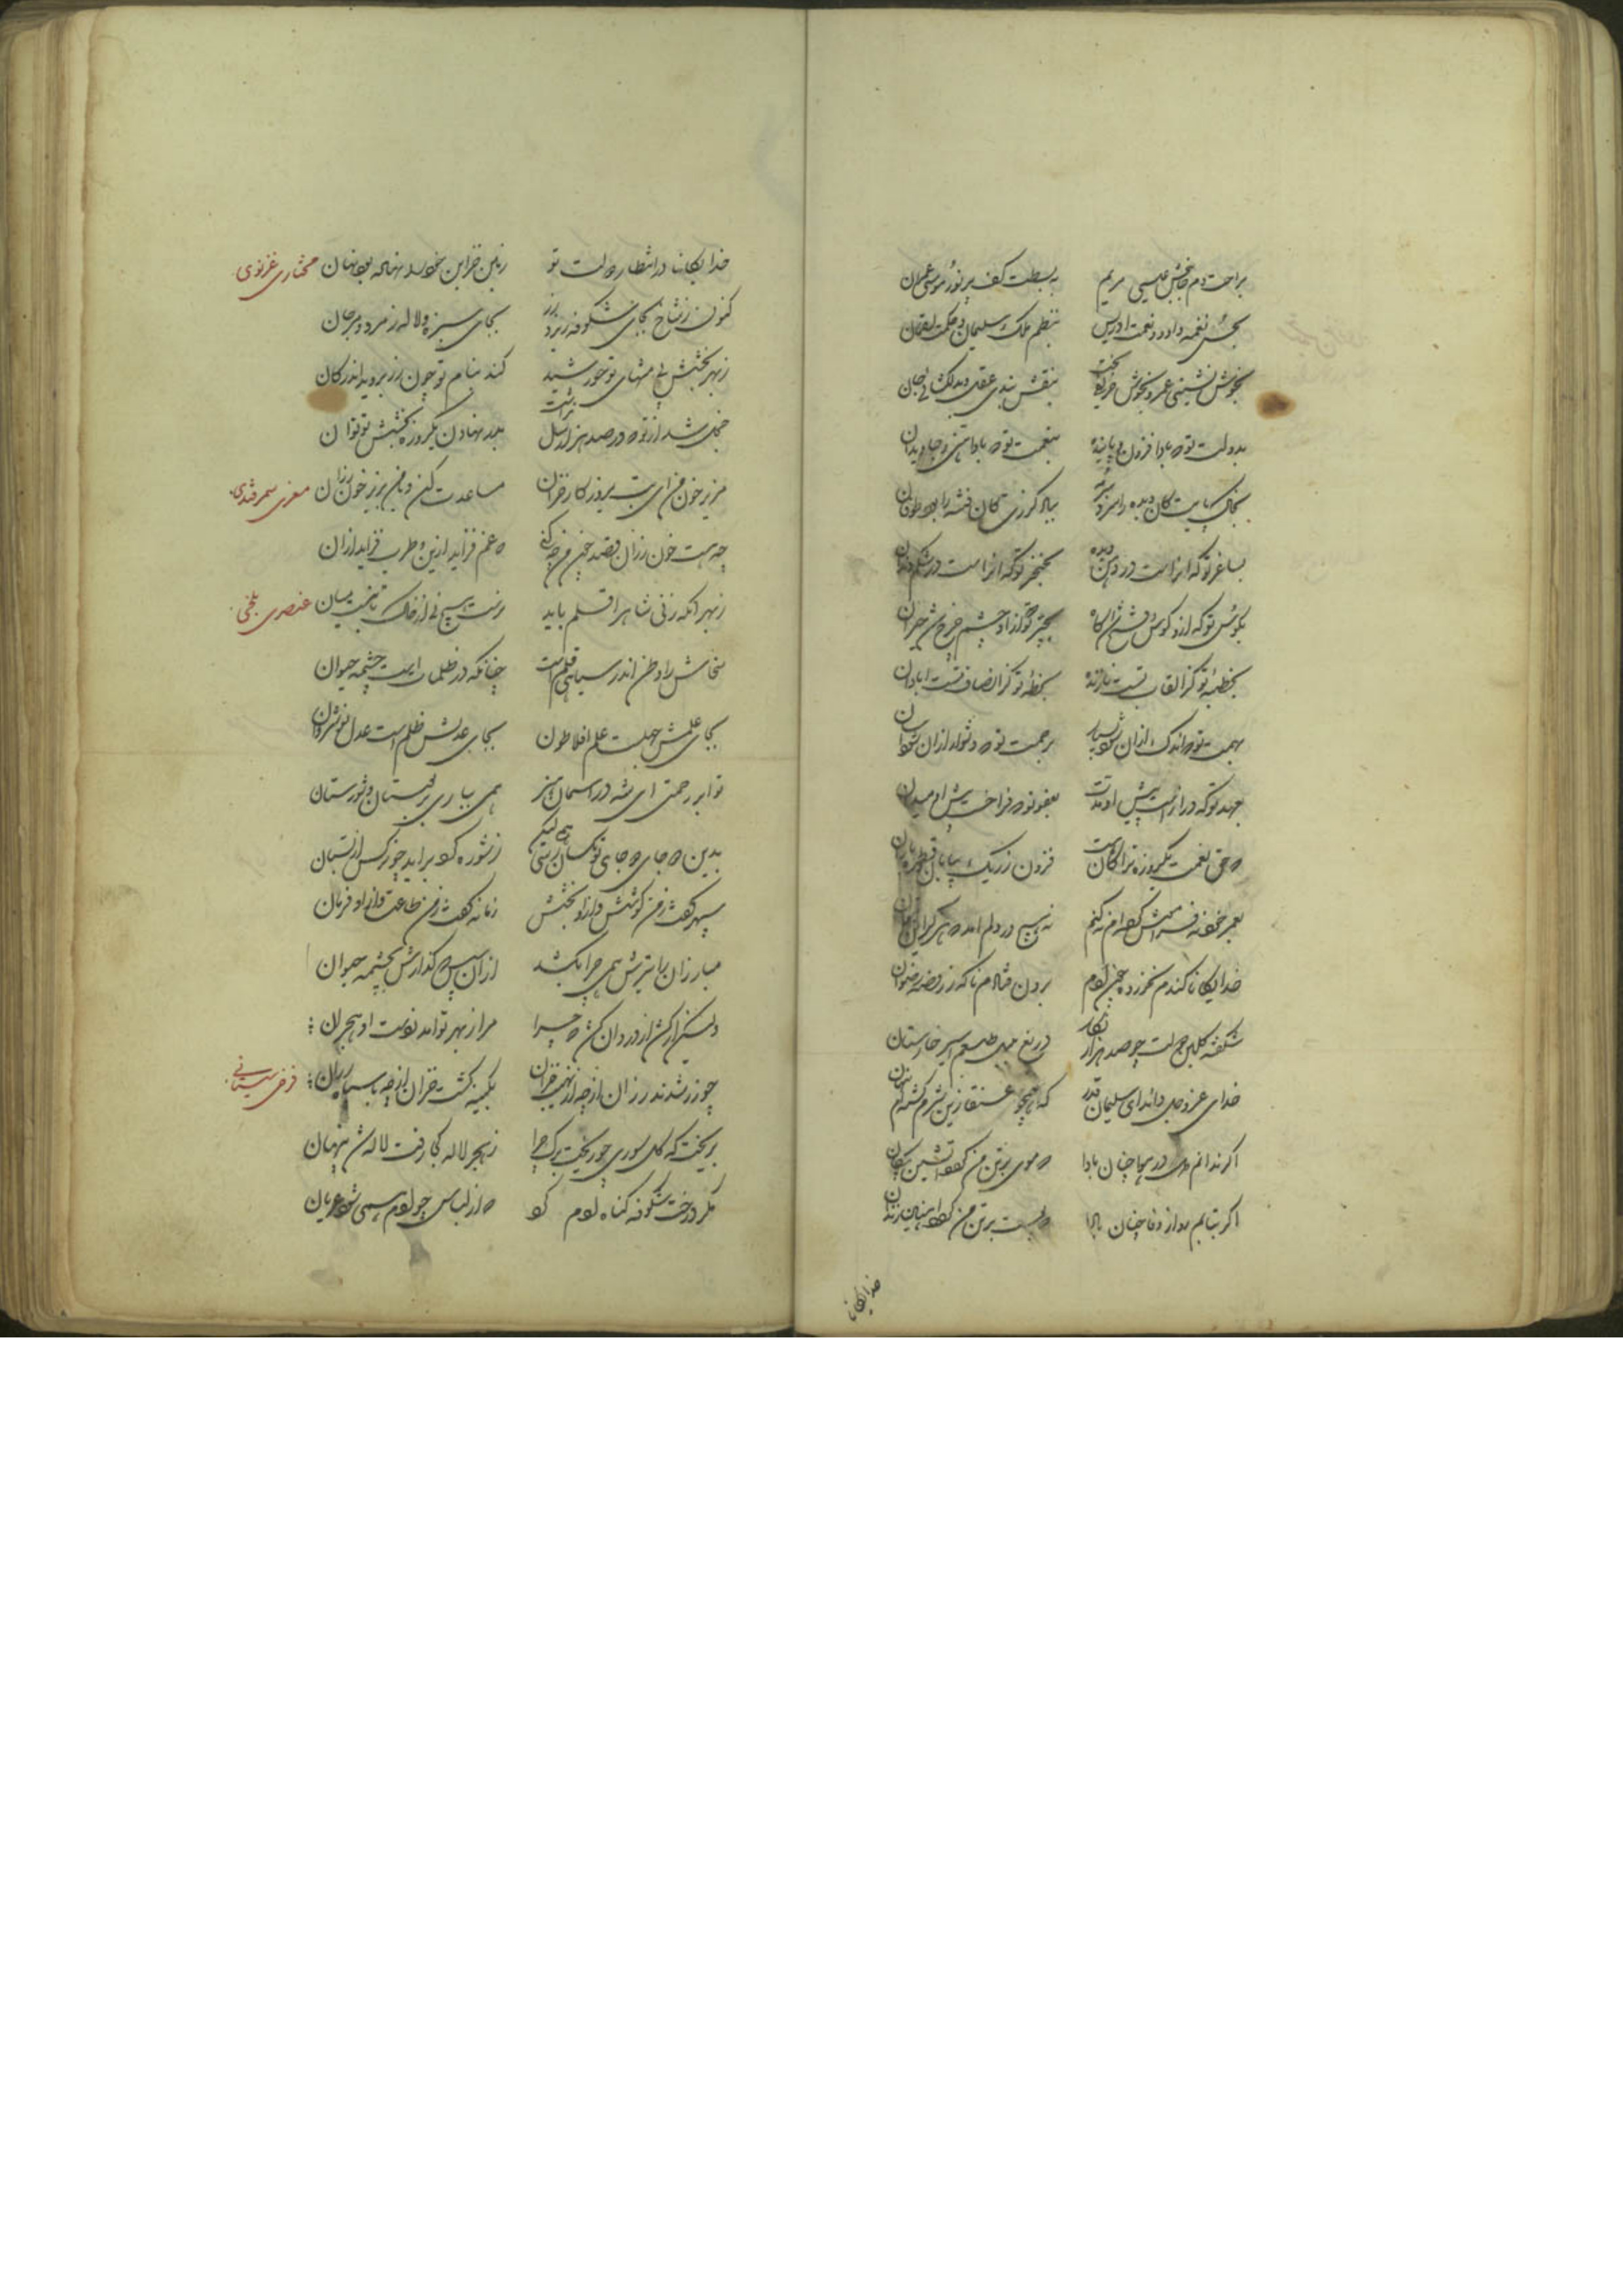 براحت دم جان‌بخش عیسی مریم به بسطت کف پرنور موسی عمران
بحسن نغمه داود و نعمت ادریس بنظم ملک سلیمان و حکمت لقمان
بخوش نشینی عمر و بخوش بنقش بندی عقل و بدلکشائی جان
بدولت تو که بادا فزون و پاینده بنعمت تو که بادا هنی و جاویدان
بخاک پایت کان دیده را بیاد گرزت کان فتنه را بود طوفان
بساغر تو که آنراست در دهن خنده بخنجر تو که آنراست در شکم دندان
بکوس تو که ازو گوش بچتر تو کزو چشم چرخ شد حیران
بخطبهٔ تو کز القاب تست نازنده بخطهٔ تو کز انصاف تست آبادان
بهمت تو که اندک ازان شود بسیار برحمت تو که دشوار ازان شود آسان
بعهد تو که درازست پیش او مدت بعفو تو که فراخست پیش او میدان
که حق نعمت یکروزه ترا فزون ز ریگ بیابان و قطره باران
بعمر خود نه فرامش کنم نه هیچ در دلم آید که هرگز این بتوان
خدایگانا گندم نخورده چون بودم برون فتادم ناگه ز روضهٔ رضوان
شکفته گلبن مجلس چو صد هزار نگار دریغ من اسیر خارستان
خدای عز و جل داند ای سلیمان قدر که همچو عنقا زین شرم گشته‌ام پنهان
اگر ندانم چنان بادا که موی بر تن من گردد آتشین پیکان
اگر نتابم چنان بادا که پوست بر تن من گردد آهنین زندان
خدایگانا
خدایگانا در انتظار دولت تو زمین خزاین خود را نهاده بود نهان مختاری غزنوی
کنون ز شاخ بجای شکوفه زر بجای سبزه و لاله زمرد و مرجان
ز بهر بخشش بی منتهای تو خورشید کند بنام تو چون زر پدید اندر کان
خجل شد از تو که در صد هزار سال نداشت بدر نهادن یکروزه بخشش تو توان
مریز خون من ای بت بروزگار خزان مساعدت کن و با من بریز خون رزان معزی سمرقندی
چو هست خون رزان قصد خون من چه کنی که غم فزاید ازین و طرب فزاید ازان
ز بهر آنکه زنی شاه را قلم باید نرست هیچ نی از خاک تا نبست میان عنصری بلخی
سخاش را وطن اندر سیاهی قلم است چنانکه در ظلمات است چشمهٔ حیوان
بجای علمش جهلست علم افلاطون بجای عدلش ظلم است عدل نوشروان
تو ابر رحمتی ای شه در آسمان هنر همی بباری بر بستان و شورستان
بدین دو جای دو جای تو یکسان همی رسی لیکن ز شوره گرد برآید چو نرگس از بستان
سپهر گفت ز من کوشش و ازو بخشش زمانه گفت ز من طاعت و ازو فرمان
مبارزان را تیرش همی چرا بکشد ازان سپس که گذارش بچشمه حیوان
ولیکن ار کش از درد آن چرا مرا ز بهر تو آمد نوشت او هجران
چو زر شدند رزان از چه از نهیب خزان بکینه گشت خزان با که با سپاه رزان فرخی سیستانی
بریخت که گل سوری چه ریخت برگ چرا ز هجر لاله کجا رفت لاله شد پنهان
مگر درخت شکوفه گناه آدم کرد که از لباس چو آدم همی شود عریان